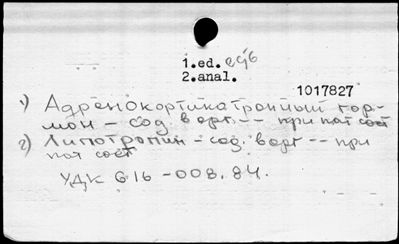 1.ed.
2.anal.
1017827
1) Адренокортикотропный гор-
мон - сод. в орг. -- при пат сост
2) Липотропин - сод. в орг -- при
пат сост
УДК 616-008.84.